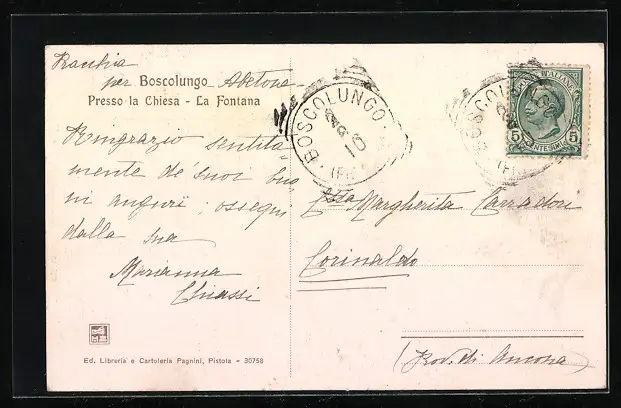 per Boscolungo Abetone
Presso la Chiesa - La Fontana
Ringrazio sentita
mente de' suoi buo
ni auguri; ossequi
dalla sua
Marianna
Chiassi
BOSCOLUNGO
10
(FI
BOSCOLUNGO
(FI
ITALIANE
5 CENTESIMI 5
Margherita Carradori
Corinaldo
(Prov. di Ancona)
Ed. Libreria e Cartoleria Pagnini, Pistoia - 30758